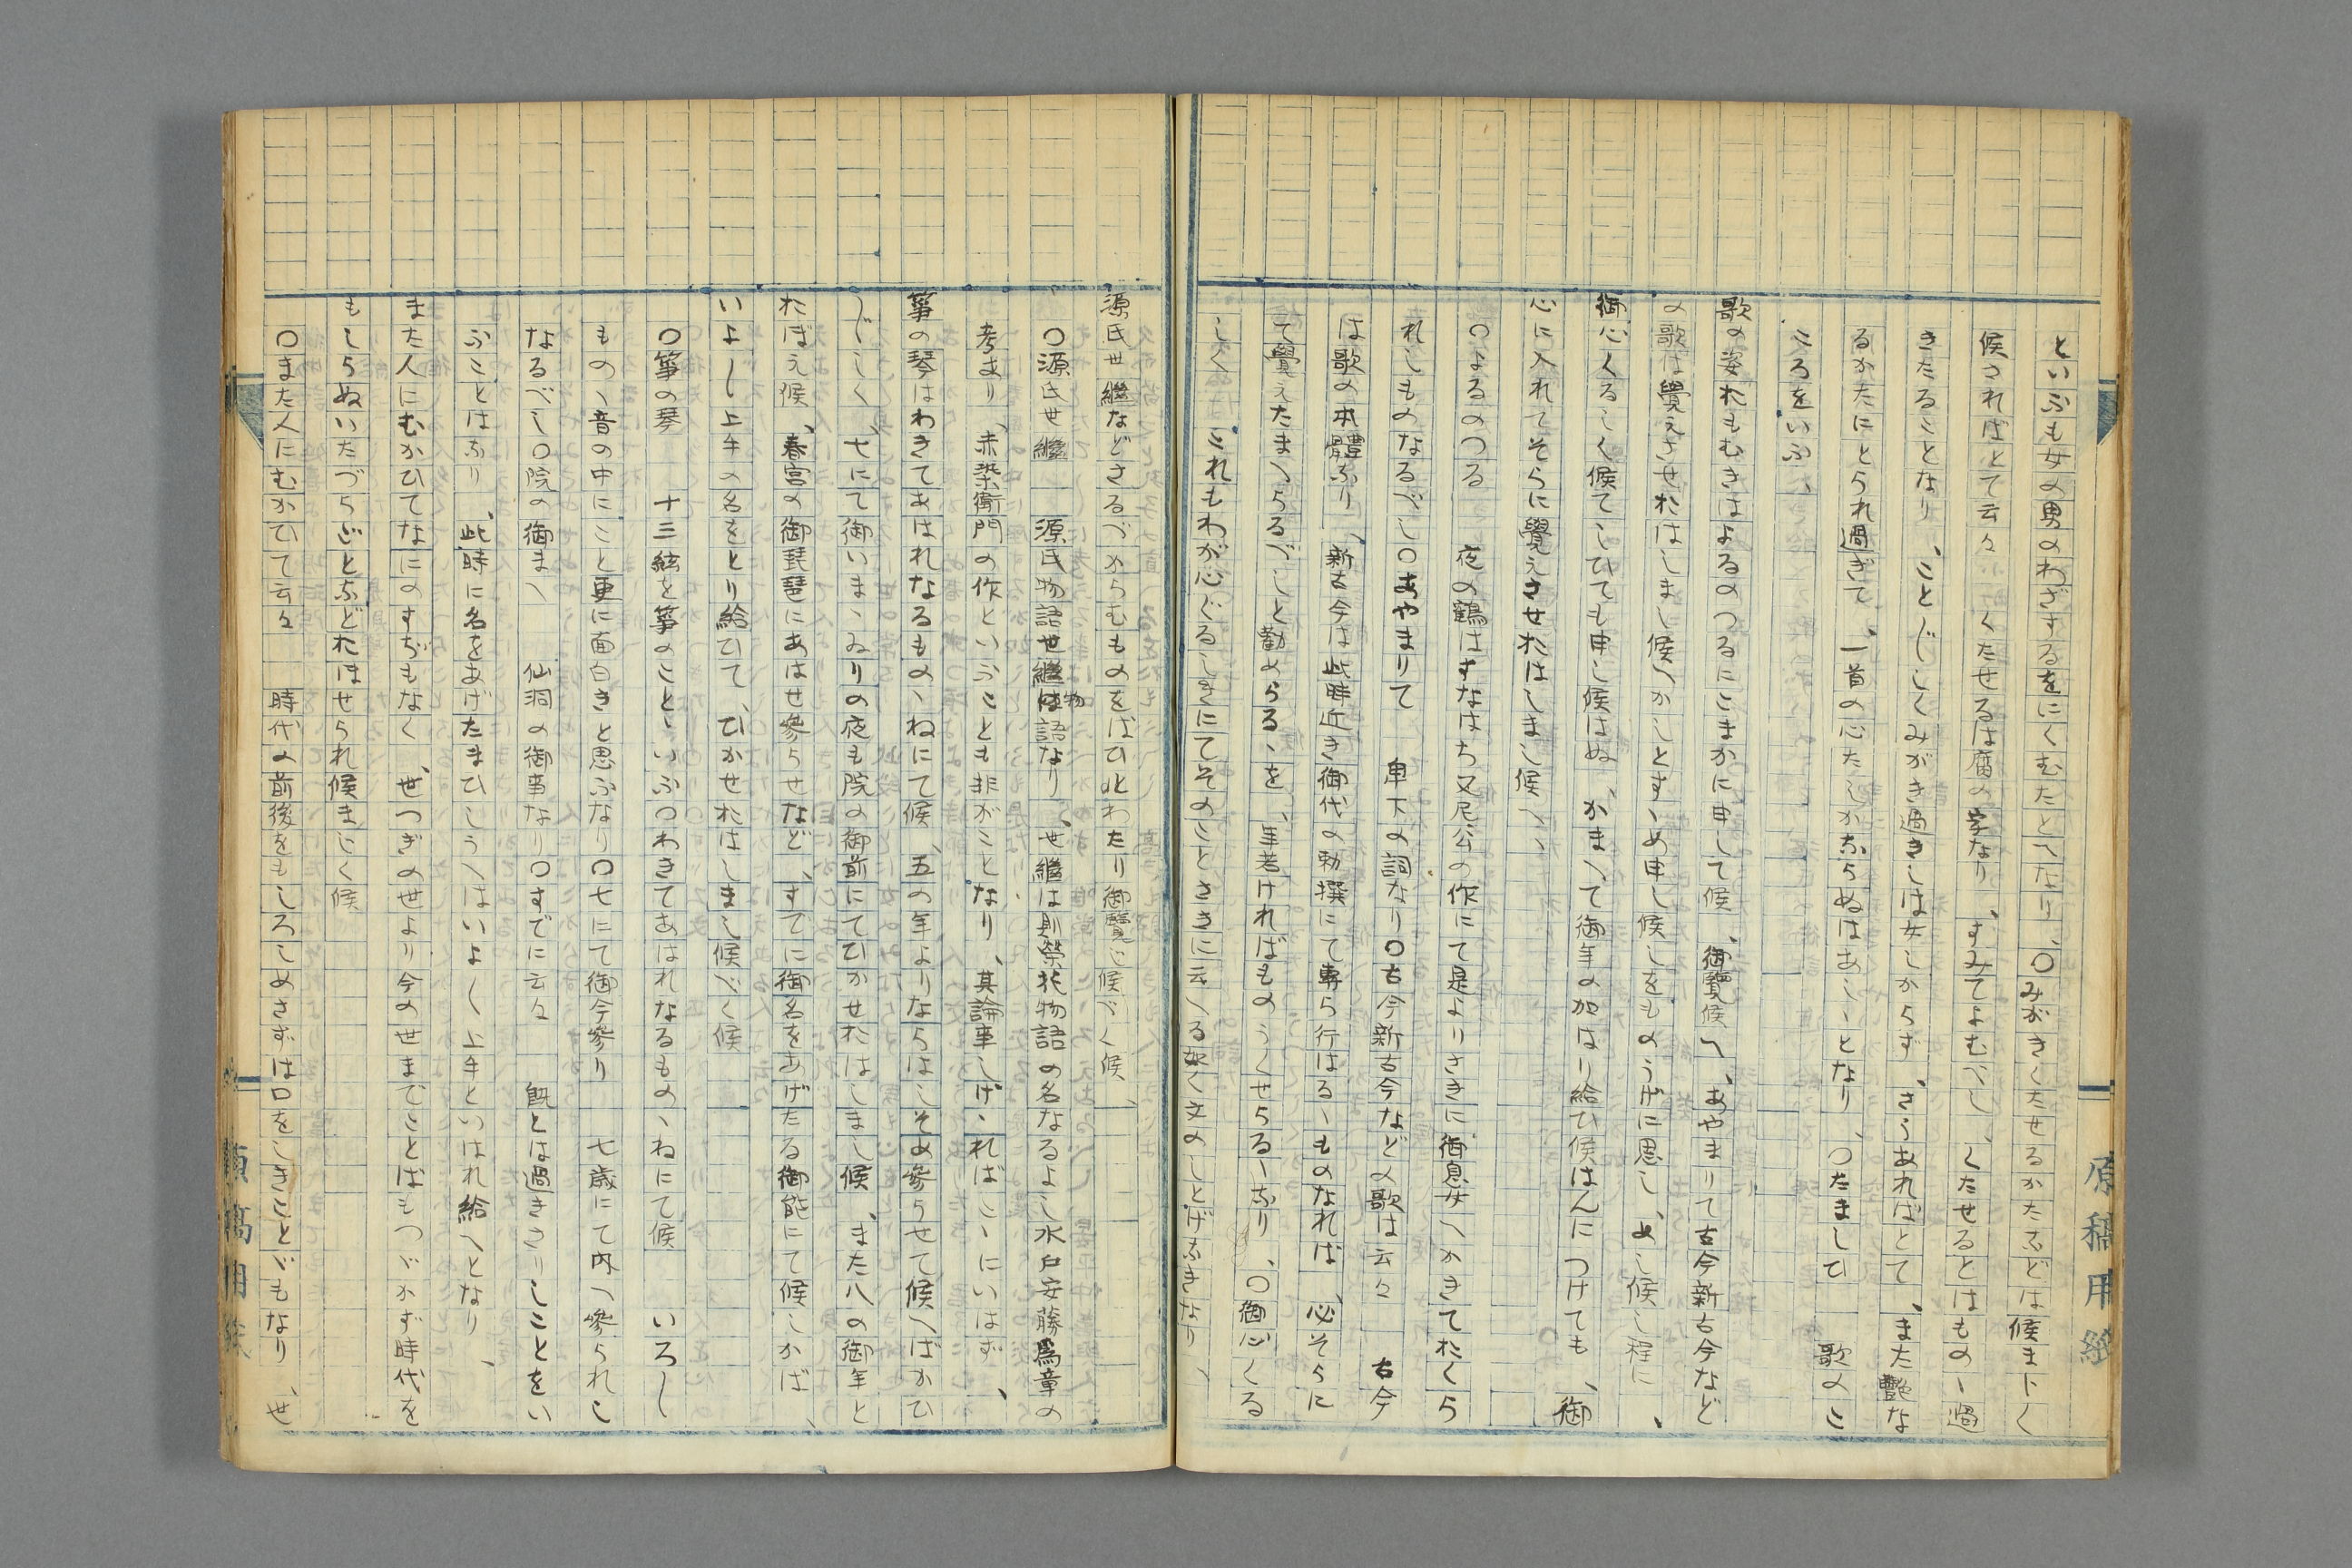 といふも女の男のわざするをにくむたとへなり、〇みがきくたせるかたなどは候まじく
候さればとて云々　くたせるは腐の字なり、すみてよむべし、くたせるとはもの、過
きたることなり、ことごとしくみがき過きしは女しからず、さうあればとて、また艶な
るかたにとられ過ぎて、一首の心たしかならぬはあしゝとなり、〇たましひ　歌のこ
ころをいふ、
歌の姿おもむきはよるのつるにこまかに申して候、御覽候へ、あやまりて古今新古今など
の歌は覺えさせおはしまし候へかしとすゝめ申し候しをものうげに思しめし候し程に、
御心くるしく候てしひても申し候はぬ、かまへて御年の加はり給ひ候はんにつけても、御
心に入れてそらに覺えさせおはしまし候へ、
〇よるのつる　夜の鶴はすなはち又尼公の作にて是よりさきに御息女へかきておくら
れしものなるべし〇あやまりて　卑下の詞なり〇古今新古今などの歌は云々　古今
は歌の本體なり、新古今は此時近き御代の勅撰にて專ら行はるゝものなれば、必そらに
て覺えたまへらるべしと勸めらるゝを、年若ければものうくせらるゝなり、〇御心くる
しく　これもわが心ぐるしきにてそのことさきに云へる如く文のしとげなきなり、
原稿用紙
源氏世繼などさるべからむものをばひとわたり御覽じ候べく候、
〇源氏世繼　源氏物語世繼物語なり、世繼は則榮花物語の名なるよし水戸安藤爲章の
考あり、赤染衞門の作といふことも非がことなり、其論事しげゝればこゝにいはず、
箏の琴はわきてあはれなるものゝねにて候、五の年よりならはしそめ參らせて候へばかひ
〲しく、七にて御いまゝゐりの夜も院の御前にてひかせおはしまし候、また八の御年と
おぼえ候、春宮の御琵琶にあはせ參らせなど、すでに御名をあげたる御能にて候しかば、
いよ〱上手の名をとり給ひて、ひかせおはしまし候べく候
〇箏の琴　十三絃を箏のことゝいふ〇わきてあはれなるものゝねにて候　いろ〱
ものゝ音の中にこと更に面白きと思ふなり〇七にて御今參り　七歳にて内へ參られし
なるべし〇院の御まへ　仙洞の御事なり〇すでに云々　既とは過ぎさりしことをい
ふことばなり、此時に名をあげたまひしうへはいよ〱上手といはれ給へとなり、
また人にむかひてなにのすぢもなく、世つぎの世より今の世までことばもつゞかず時代を
もしらぬいたづらごとなどおほせられ候まじく候
〇また人にむかひて云々　時代の前後をもしろしめさずは口をしきことどもなり、世
原稿用紙